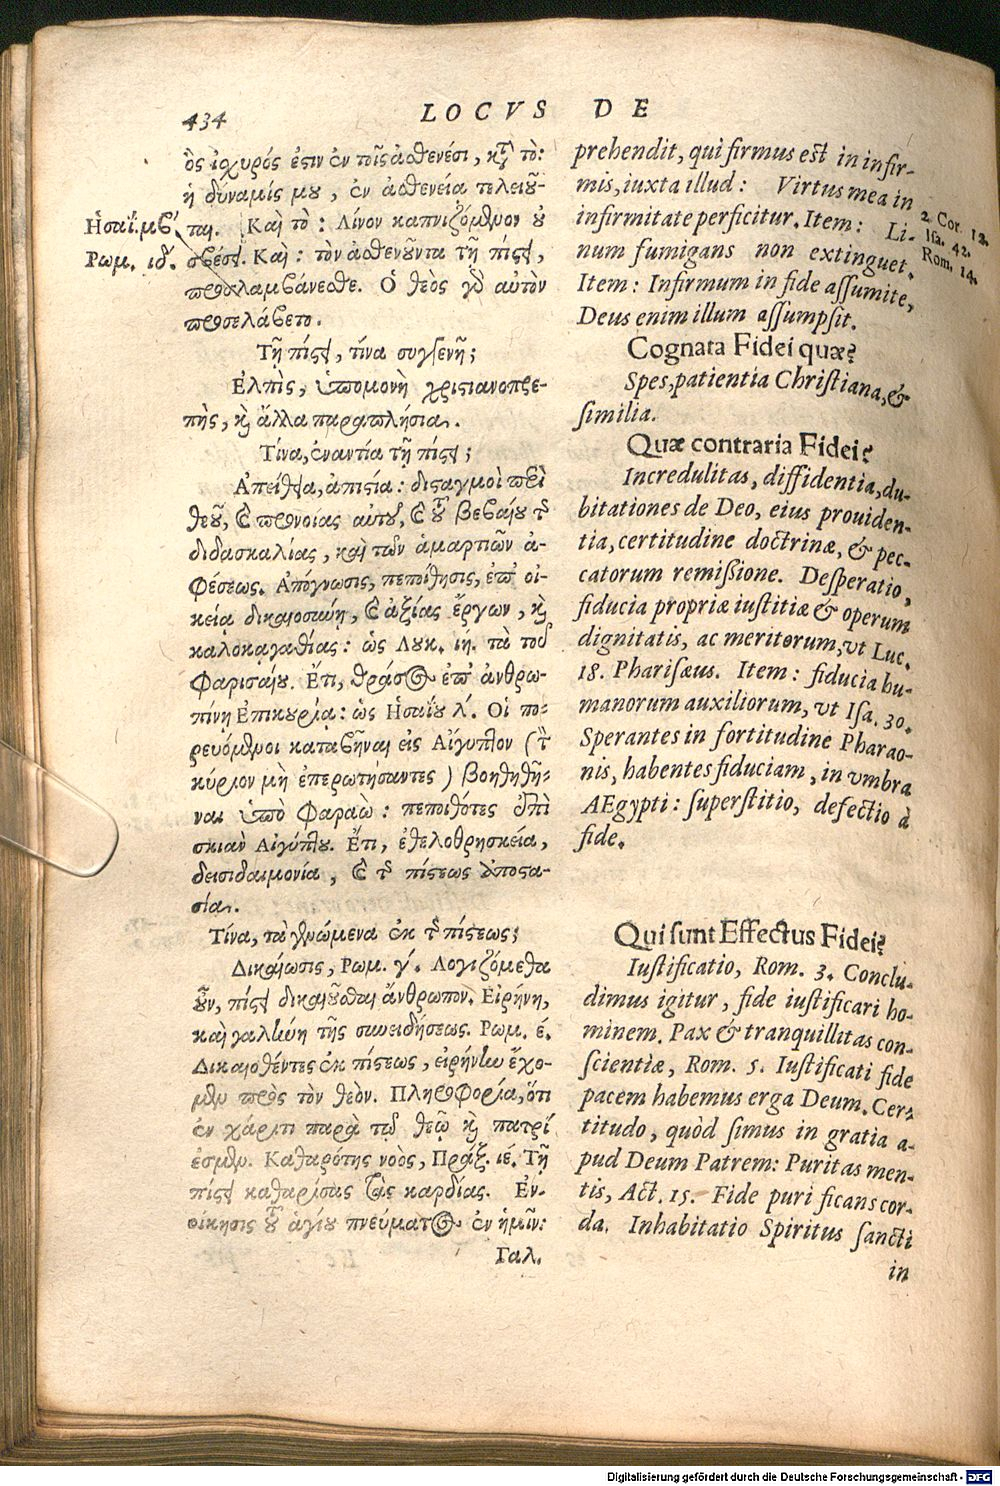 434
LOCVS DE
ὃς ἰσχυρός ἐστιν ἐν τοῖς ἀσθενέσι, κατὰ τὸ:
ἡ δύναμίς μου, ἐν ἀσθενείᾳ τελειοῦ-
ται. Καὶ τὸ: Λίνον καπνιζόμενον οὐ
σβέσει. Καὶ: τὸν ἀσθενοῦντα τῇ πίστει,
προσλαμβάνεσθε. Ὁ θεὸς γὰρ αὐτὸν
προσελάβετο.
Ἡσαΐ. μβ´
Ρωμ. ιδ´.
Τῇ πίστει, τίνα συγγενῆ;
Ελπὶς, ὑπομονὴ χριστιανοπρε-
πὴς, καὶ ἄλλα παραπλήσια.
Τίνα, ἐναντία τῇ πίστει;
Απείθεια, ἀπιστία: δισταγμοὶ περὶ
θεοῦ, καὶ προνοίας αὐτοῦ, καὶ τοῦ βεβαίου τῆς
διδασκαλίας, καὶ τῶν ἁμαρτιῶν ἀ-
φέσεως. Απόγνωσις, πεποίθησις, ἐπ' οἰ-
κείᾳ δικαιοσύνῃ, καὶ ἀξίας ἔργων, καὶ
καλοκαγαθίας: ὡς Λουκ. ιη. τὰ τοῦ
Φαρισαίου. Ἔτι, θράσος ἐπ' ἀνθρω-
πίνῃ Επικουρίᾳ: ὡς Ἡσαΐου λ´. Οἱ πο-
ρευόμενοι καταβῆναι εἰς Αἴγυπτον (τὸν
κύριον μὴ ἐπερωτήσαντες) βοηθηθῆ-
ναι ὑπὸ Φαραὼ: πεποιθότες ἐπὶ
σκιὰν Αἰγύπτου. Ἔτι, ἐθελοθρησκεία,
δεισιδαιμονία, καὶ τῆς πίστεως ἀποστα-
σία.
Τίνα, τὰ γινώμενα ἐκ τῆς πίστεως;
Δικαίωσις, Ρωμ. γ´. Λογιζόμεθα
οὖν, πίστει δικαιοῦσθαι ἄνθρωπον. Εἰρήνη,
καὶ γαλήνη τῆς συνειδήσεως. Ρωμ. έ.
Δικαιοθέντες ἐκ πίστεως, εἰρήνην ἔχο-
μεν πρὸς τὸν θεὸν. Πληροφορία, ὅτι
ἐν χάριτι παρὰ τῷ θεῷ καὶ πατρί
ἐσμεν. Καθαρότης νοὸς, Πράξ. ιέ. Τῇ
πίστει καθαρίσας τὰς καρδίας. Εν-
οίκησις τοῦ ἁγίου πνεύματος ἐν ἡμῖν:
Γαλ.
prehendit, qui firmus est in infir-
mis, iuxta illud: Virtus mea in
infirmitate perficitur. Item: Li-
num fumigans non extinguet.
Item: Infirmum in fide assumite,
Deus enim illum assumpsit.
2. Cor. 12.
Isa. 42.
Rom. 14.
Cognata Fidei quæ?
Spes, patientia Christiana, &
similia.
Quæ contraria Fidei?
Incredulitas, diffidentia, du-
bitationes de Deo, eius prouiden-
tia, certitudine doctrinæ, & pec-
catorum remissione. Desperatio,
fiducia propriæ iustitiæ & operum
dignitatis, ac meritorum, vt Luc.
18. Pharisæus. Item: fiducia hu-
manorum auxiliorum, vt Isa. 30.
Sperantes in fortitudine Pharao-
nis, habentes fiduciam, in vmbra
AEgypti: superstitio, defectio à
fide.
Qui sunt Effectus Fidei?
Iustificatio, Rom. 3. Conclu-
dimus igitur, fide iustificari ho-
minem. Pax & tranquillitas con-
scientiæ, Rom. 5. Iustificati fide
pacem habemus erga Deum. Cer-
titudo, quòd simus in gratia a-
pud Deum Patrem: Puritas men-
tis, Act. 15. Fide purificans cor-
da. Inhabitatio Spiritus sancti
in
Digitalisierung gefördert durch die Deutsche Forschungsgemeinschaft - DFG